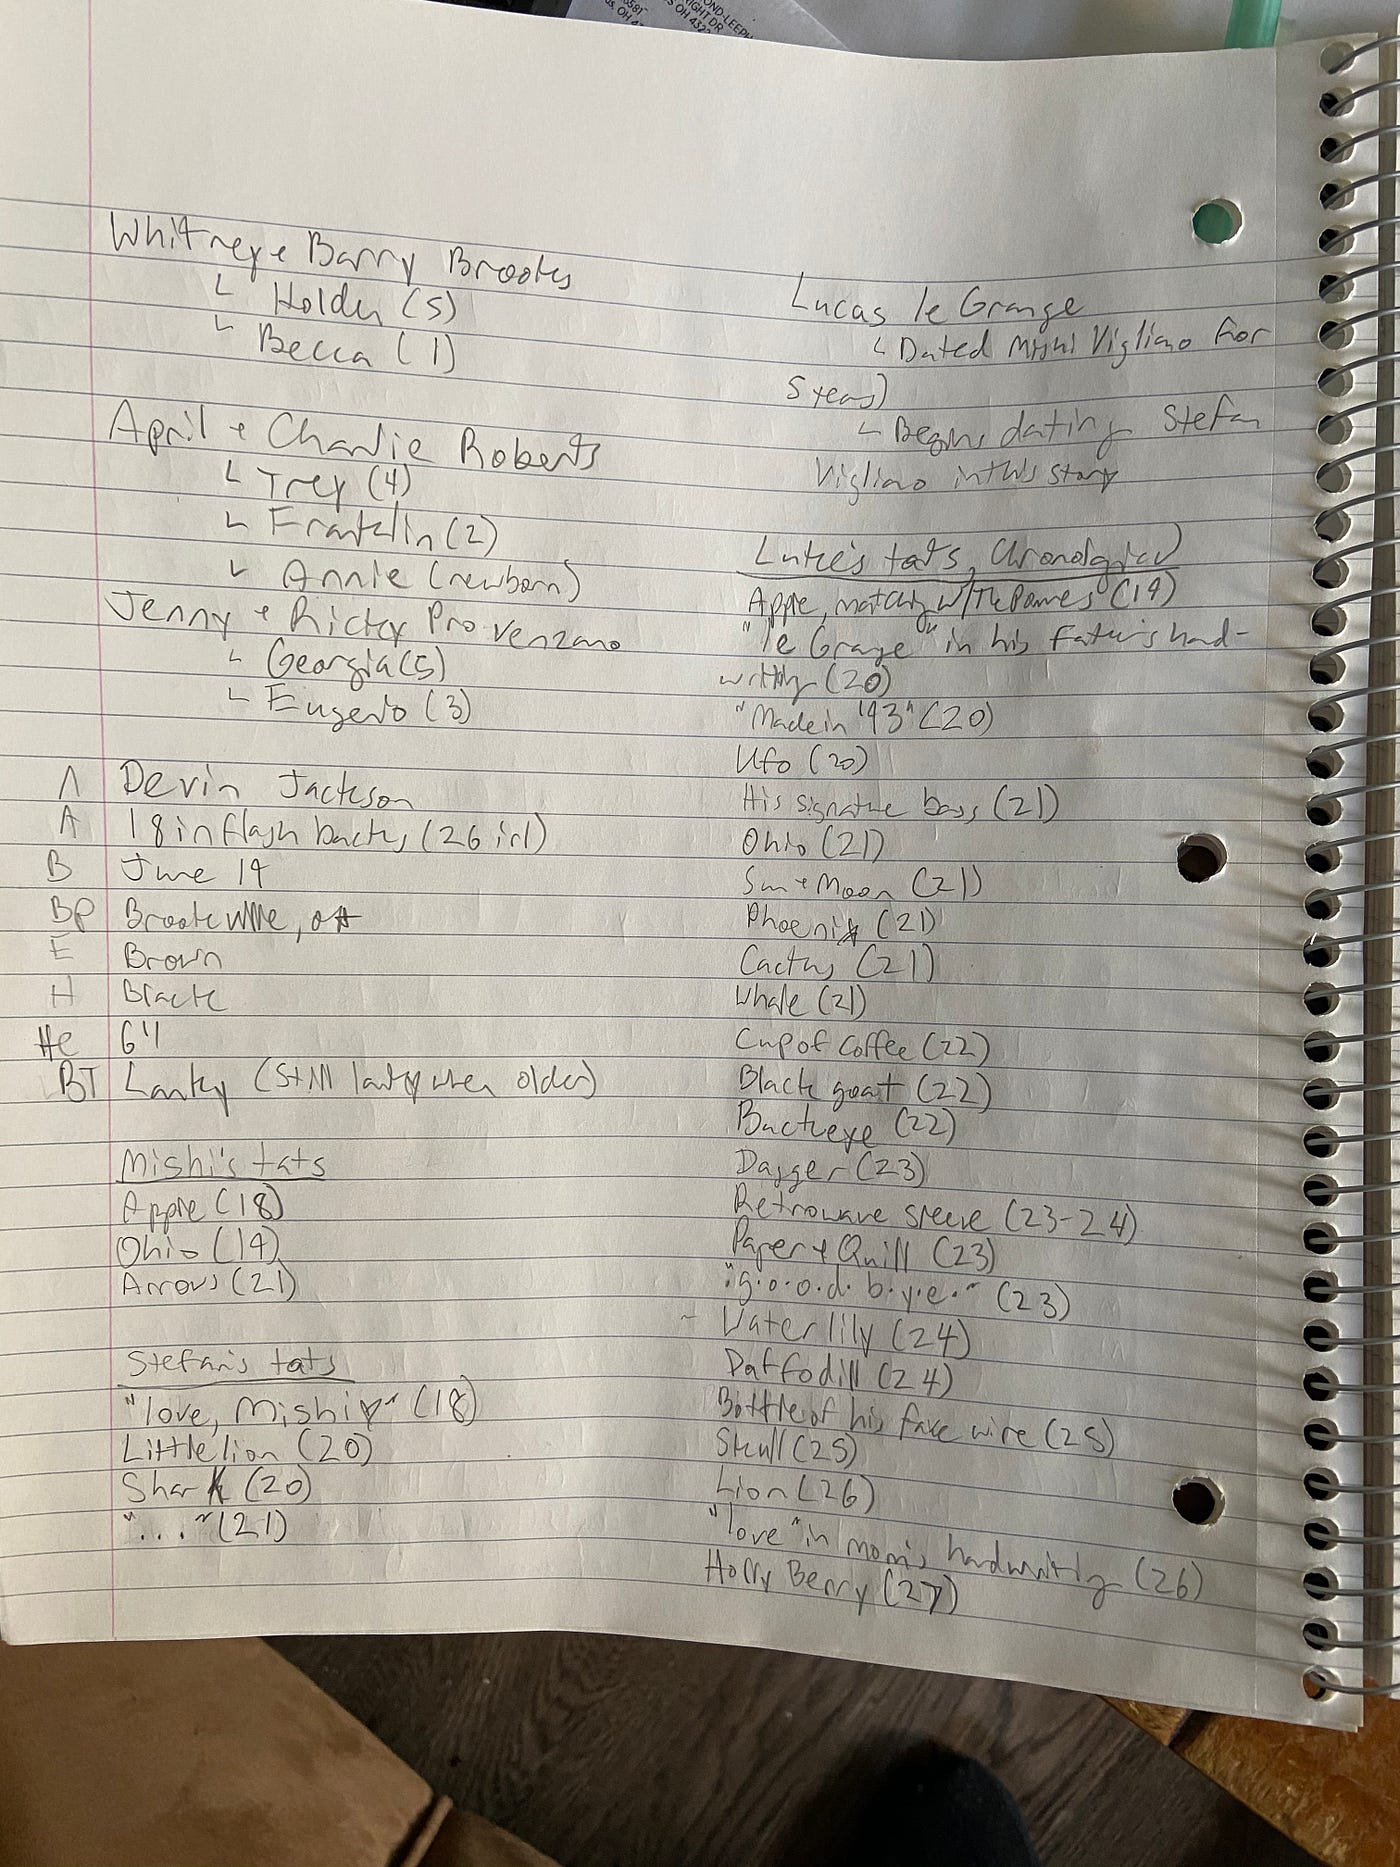 OND-LEEPH
IGHT DR
S OH 432
0581
us, OH 4
Whitney + Barry Brooks
Holden (5)
Becca (1)
April + Charlie Roberts
Trey (4)
Franklin (2)
Annie (newborn)
Jenny + Ricky Provenzano
Georgia (5)
Eugenio (3)
N Devin Jackson
A 18 in flash backs (26 irl)
B June 14
BP Brookville, OH
E Brown
H Black
He 6'4
BT Lanky (still lanky when older)
Mishi's tats
Apple (18)
Ohio (19)
Arrows (21)
Stefan's tats
"love, Mishi ♥" (18)
Little lion (20)
Shark (20)
"..." (21)
Lucas le Grange
Dated Mishi Vigliano for
5 years)
Begins dating Stefan
Vigliano in this story
Luke's tats, chronological
Apple, matching w/ The Pomes (19)
"le Grange" in his father's hand-
writing (20)
"Made in '93" (20)
Ufo (20)
His signature bass (21)
Ohio (21)
Sun + Moon (21)
Phoenix (21)
Cactus (21)
Whale (21)
Cup of coffee (22)
Black goat (22)
Buckeye (22)
Dagger (23)
Retrowave sleeve (23-24)
Paper + Quill (23)
"g.o.o.d. b.y.e." (23)
- Water lily (24)
Daffodill (24)
Bottle of his fave wine (25)
Skull (25)
Lion (26)
"love" in mom's handwriting (26)
Holly Berry (27)